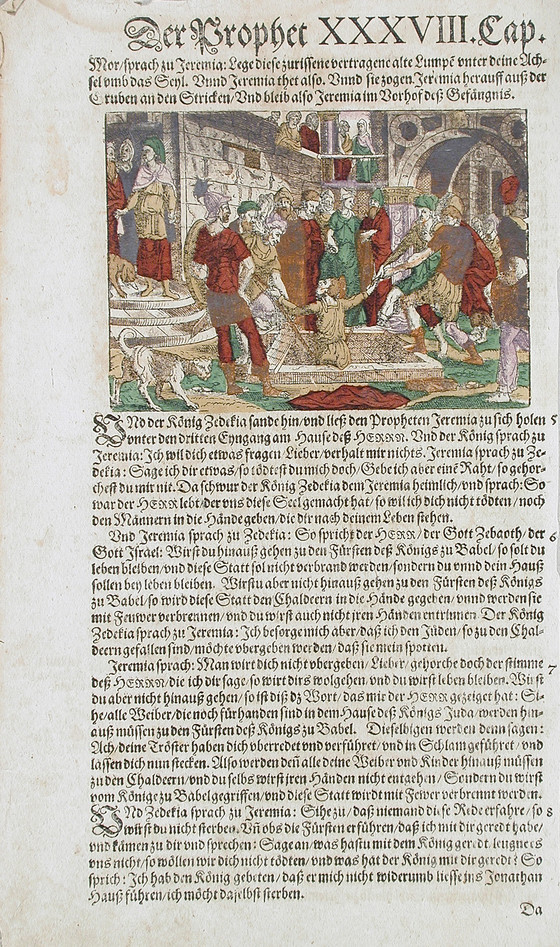 Der Prophet XXXVIII. Cap.
Mor/sprach zu Jeremia: Lege diese zurissene vertragene alte Lumpẽ vnter deine Ach-
sel vmb das Seyl. Vnnd Jeremia thet also. Vnnd sie zogen Jeremia herauff auß der
Gruben an den Stricken/Vnd bleib also Jeremia im Vorhof deß Gefängnis.
VNd der König Zedekia sande hin/vnd ließ den Propheten Jeremia zu sich holen 5
vnter den dritten Eyngang am Hause deß HERRN. Vnd der König sprach zu
Jeremia: Ich wil dich etwas fragen/Lieber/verhalt mir nichts. Jeremia sprach zu Ze-
dekia: Sage ich dir etwas/so tödtest du mich doch/Gebe ich aber einẽ Raht/so gehor-
chest du mir nit. Da schwur der König Zedekia dem Jeremia heimlich/vnd sprach: So
war der HERR lebt/der vns diese Seel gemacht hat/so wil ich dich nicht tödten/noch
den Männern in die Hände geben/die dir nach deinem Leben stehen.
Vnd Jeremia sprach zu Zedekia: So spricht der HERR/der Gott Zebaoth/der 6
Gott Israel: Wirst du hinauß gehen zu den Fürsten deß Königs zu Babel/so solt du
leben bleiben/vnd diese Statt sol nicht verbrand werden/sondern du vnnd dein Hauß
sollen bey leben bleiben. Wirstu aber nicht hinauß gehen zu den Fürsten deß Königs
zu Babel/so wird diese Statt den Chaldeern in die Hände gegeben/vnnd werden sie
mit Feuwer verbrennen/vnd du wirst auch nicht jren Händen entrinnen. Der König
Zedekia sprach zu Jeremia: Ich besorge mich aber/daß ich den Jüden/so zu den Chal-
deern gefallen sind/möchte vbergeben werden/daß sie mein spotten.
Jeremia sprach: Man wirt dich nicht vbergeben/Lieber/gehorche doch der stimme 7
deß HERRN/die ich dir sage/so wirt dirs wolgehen/vnd du wirst leben bleiben. Wirst
du aber nicht hinauß gehen/so ist diß dz Wort/das mir der HERR gezeiget hat: Si-
he/alle Weiber/die noch fürhanden sind in dem Hause deß Königs Juda/werden hin-
auß müssen zu den Fürsten deß Königs zu Babel. Dieselbigen werden denn sagen:
Ach/deine Tröster haben dich vberredet vnd verführet/vnd in Schlam geführet/vnd
lassen dich nun stecken. Also werden deñ alle deine Weiber vnd Kinder hinauß müssen
zu den Chaldeern/vnd du selbs wirst jren Händen nicht entgehen/Sondern du wirst
vom Könige zu Babel gegriffen/vnd diese Statt wirdt mit Fewer verbrennt werden.
VND Zedekia sprach zu Jeremia: Sihe zu/daß niemand diese Rede erfahre/so 8
wirst du nicht sterben. Vñ obs die Fürsten erführen/daß ich mit dir geredt habe/
vnd kämen zu dir vnd sprechen: Sage an/was hastu mit dem König geredt/leugne es
vns nicht/so wöllen wir dich nicht tödten/vnd was hat der König mit dir geredt? So
sprich: Ich hab den König gebeten/daß er mich nicht widerumb liesse ins Jonathan
Hauß führen/ich möcht daselbst sterben.
Da